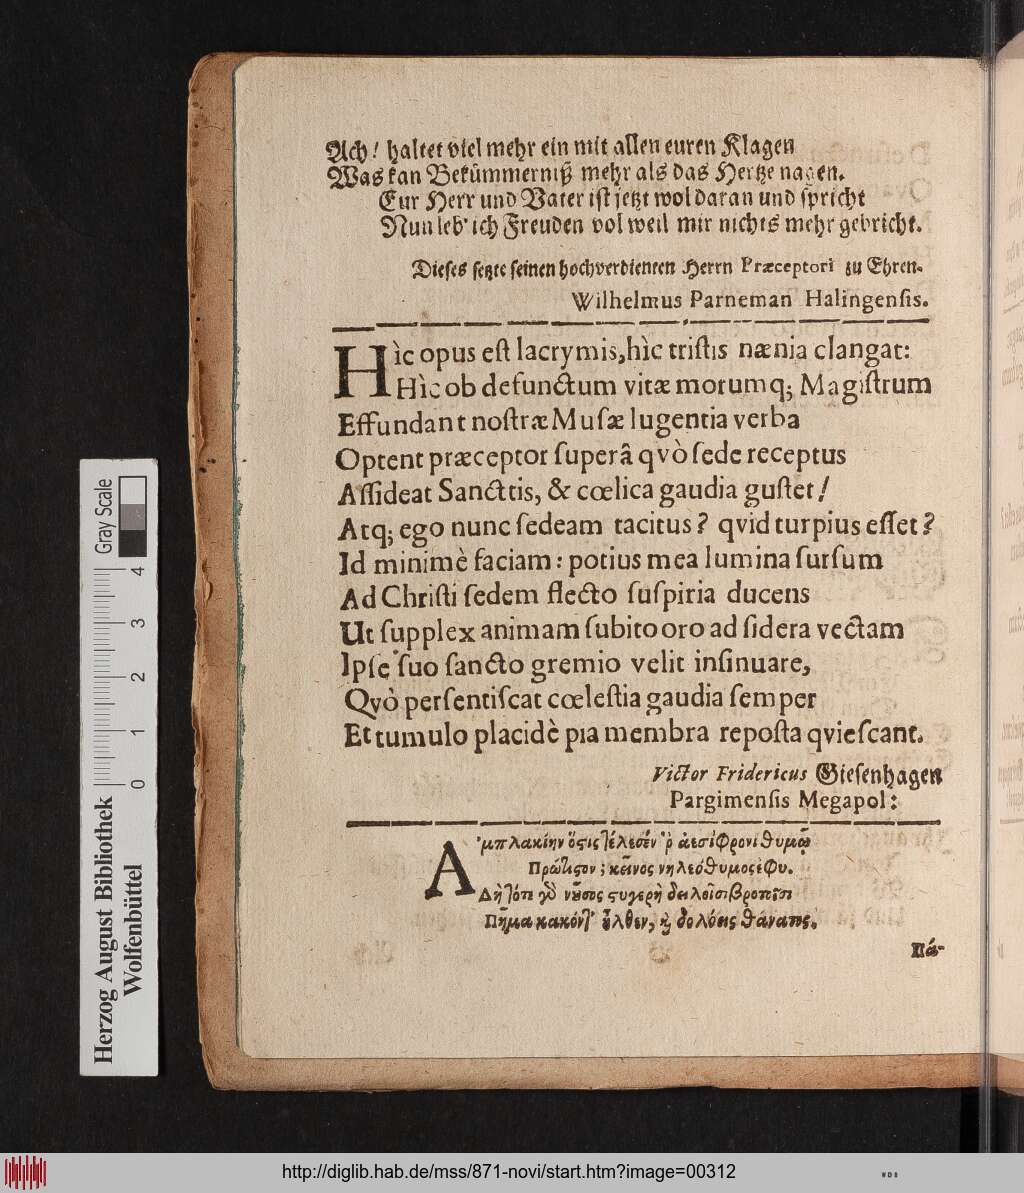 Ach! haltet viel mehr ein mit allen euren Klagen
Was kan Bekümmerniß mehr als das Hertze nagen.
Eur Herr und Vater ist jetzt wol daran und spricht
Nun leb' ich Freuden vol weil mir nichts mehr gebricht.
Dieses setzte seinen hochverdienten Herrn Præceptori zu Ehren.
Wilhelmus Parneman Halingensis.
Hìc opus est lacrymis, hìc tristis nænia clangat:
Hìc ob defunctum vitæ morumq; Magistrum
Effundant nostræ Musæ lugentia verba
Optent præceptor superâ qvò sede receptus
Assideat Sanctis, & cœlica gaudia gustet!
Atq; ego nunc sedeam tacitus? qvid turpius esset?
Id minimè faciam: potius mea lumina sursum
Ad Christi sedem flecto suspiria ducens
Ut supplex animam subito oro ad sidera vectam
Ipse suo sancto gremio velit insinuare,
Qvò persentiscat cœlestia gaudia semper
Et tumulo placidè pia membra reposta qviescant.
Victor Fridericus Giesenhagen
Pargimensis Megapol:
Ἀμπλακίην ὅστις τέλεσέν ῥ' ἀεσίφρονι θυμῷ
Πρώτιστον; κεῖνος νηλεόθυμος ἔφυ.
Δὴ τότε γὰρ νοῦσος στυγερὴ δειλοῖσι βροτοῖσι
Πῆμα κακόντ' ἦλθεν, καὶ δολόεις θάνατος.
Πά-
Herzog August Bibliothek
Wolfenbüttel
0 1 2 3 4
Gray Scale
http://diglib.hab.de/mss/871-novi/start.htm?image=00312